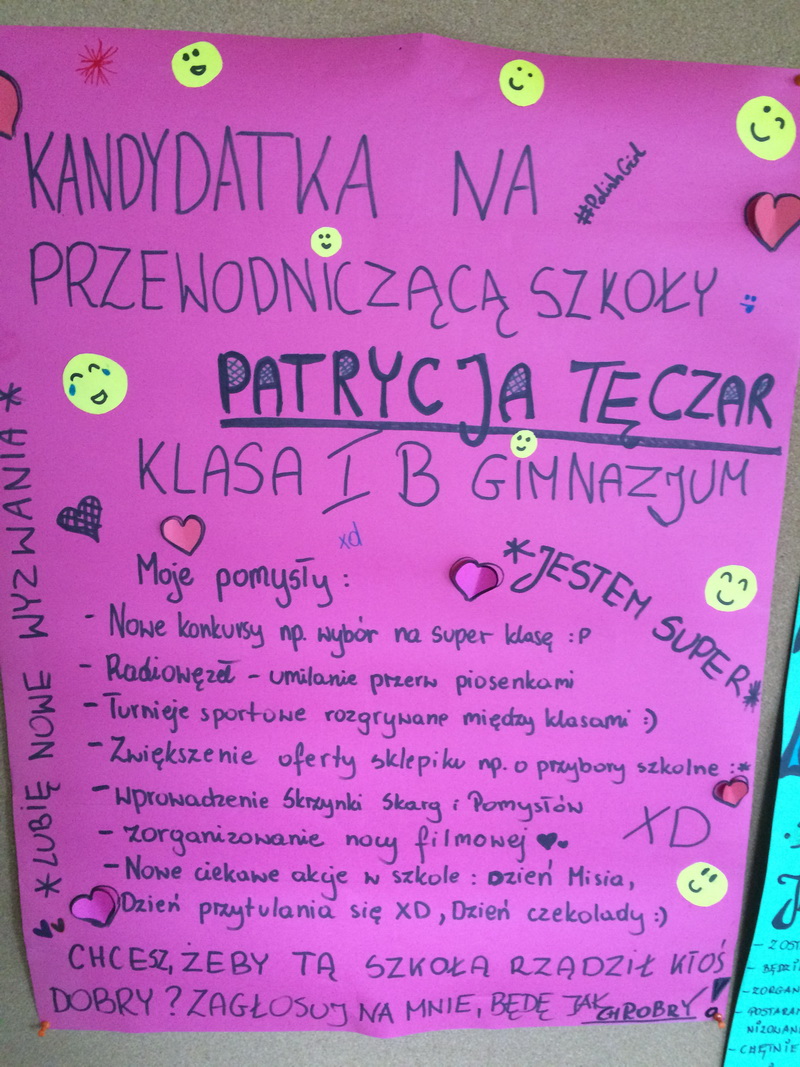 KANDYDATKA NA
#PolishGirl
PRZEWODNICZĄCĄ SZKOŁY
PATRYCJA TĘCZAR
KLASA I B GIMNAZJUM
xd
*JESTEM SUPER*
*LUBIĘ NOWE WYZWANIA*
Moje pomysły:
- Nowe konkursy np. wybór na super klasę :P
- Radiowęzeł - umilanie przerw piosenkami
- Turnieje sportowe rozgrywane między klasami :)
- Zwiększenie oferty sklepiku np. o przybory szkolne :*
- Wprowadzenie Skrzynki Skarg i Pomysłów
XD
- zorganizowanie nocy filmowej
- Nowe ciekawe akcje w szkole: Dzień Misia,
Dzień przytulania się XD, Dzień czekolady :)
CHCESZ, ŻEBY TĄ SZKOŁĄ RZĄDZIŁ KTOŚ
DOBRY? ZAGŁOSUJ NA MNIE, BĘDĘ JAK CHROBRY!
- ZOST
- BĘDZI
- ZORGAN
- POSTARAM
NIZOWANI
- CHĘTNIE